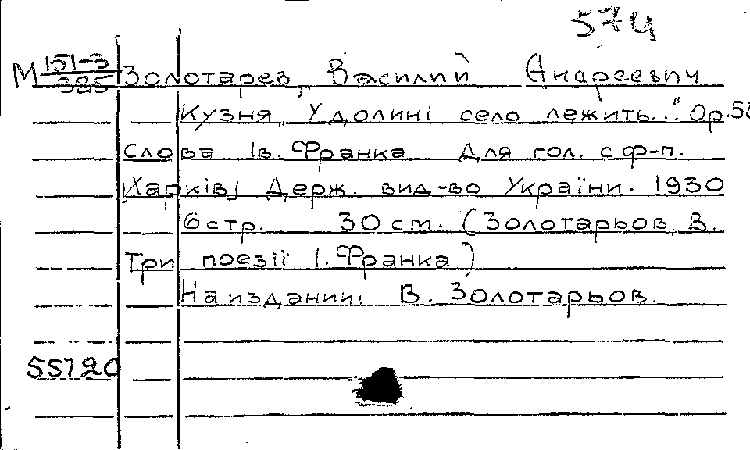 574
М 151-3
385
Золотарев, Василий Андреевич
Кузня „У долині село лежить.." Ор.58
Слова Ів. Франка Для гол. с ф-п.
Харків, Держ. вид-во України. 1930
6 стр. 30 см. (Золотарьов В.
Три поезії І. Франка)
На издании: В. Золотарьов.
55720